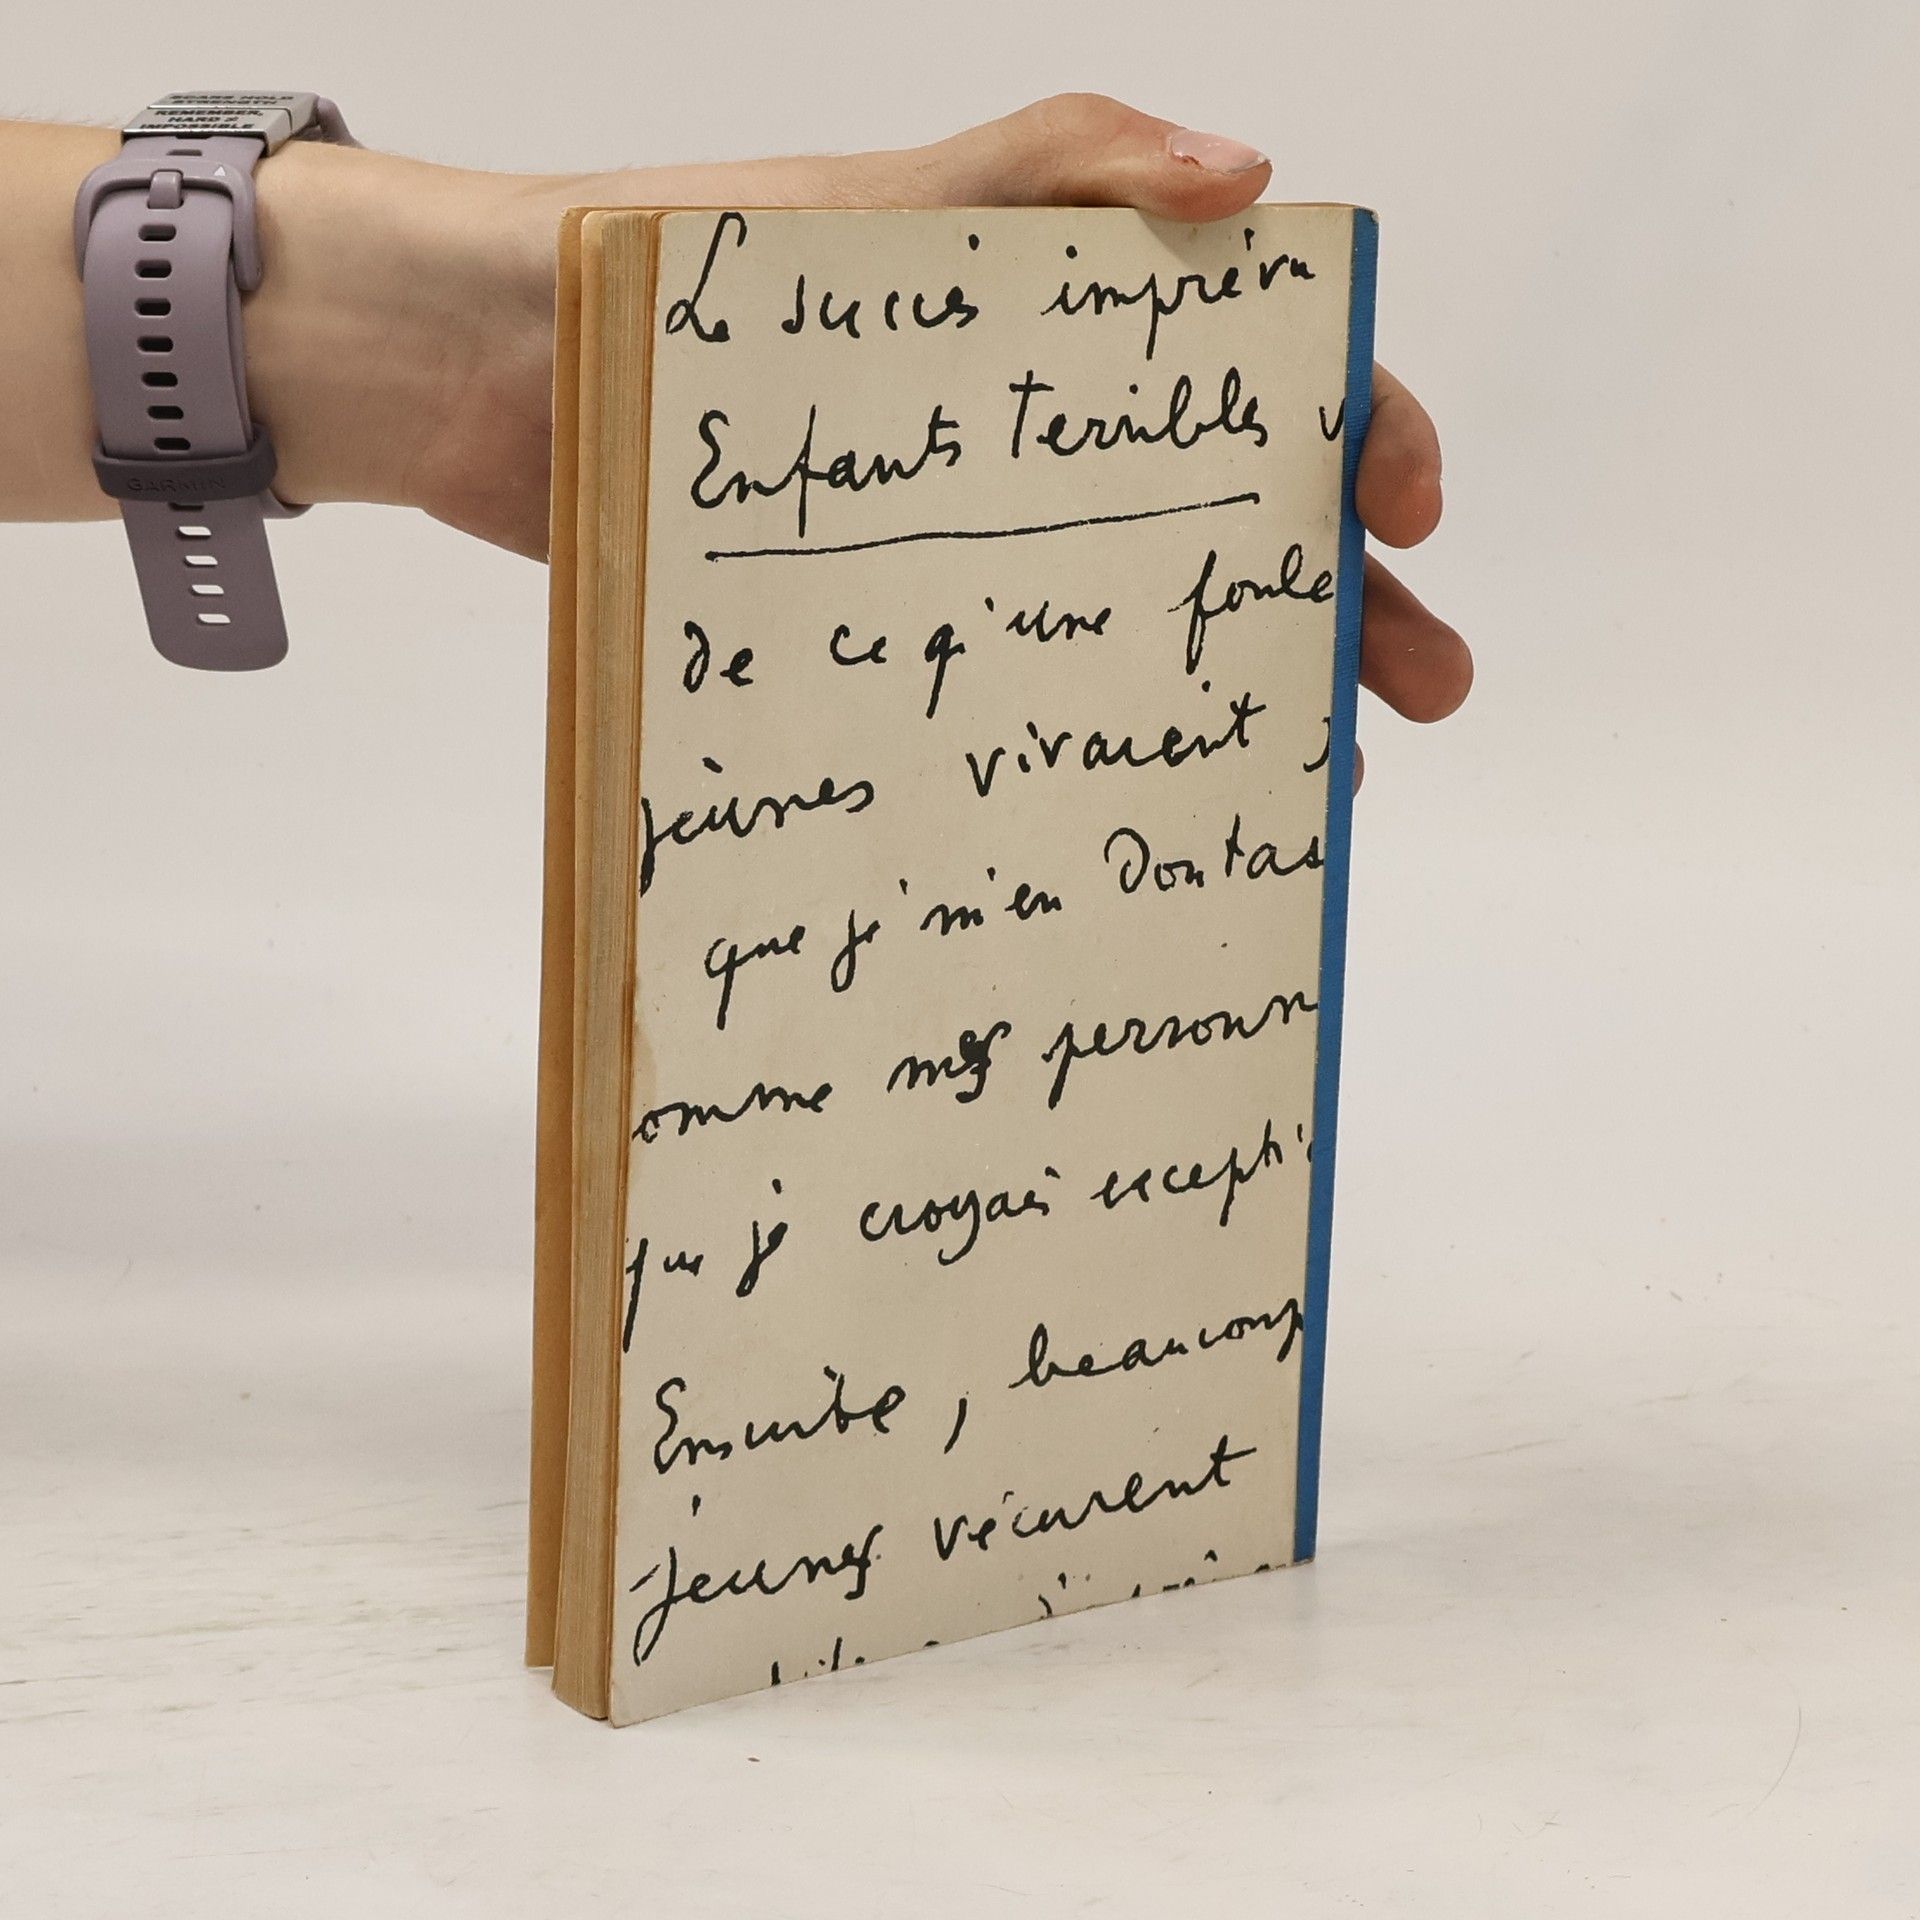 SCARS HOLD
STRENGTH
REMEMBER,
HARD ≠
IMPOSSIBLE
GARMIN
Le succès imprévu
Enfants Terribles v
de ce qu'une foule
jeunes vivaient
que je m'en doutas
omme mes personn
que je croyais excepti
Ensuite, beaucoup
jeunes vécurent